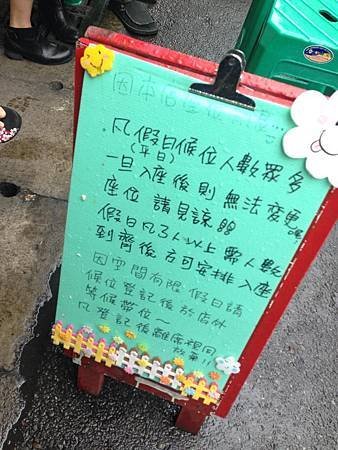 因本店座位有限
凡假日候位人數眾多
(平日)
一旦入座後則無法變更
座位 請見諒
假日凡3人以上 需人數
到齊後 方可安排入座
因空間有限 假日請
候位登記後於店外
等候帶位～
凡登記後離席視同
放棄!!